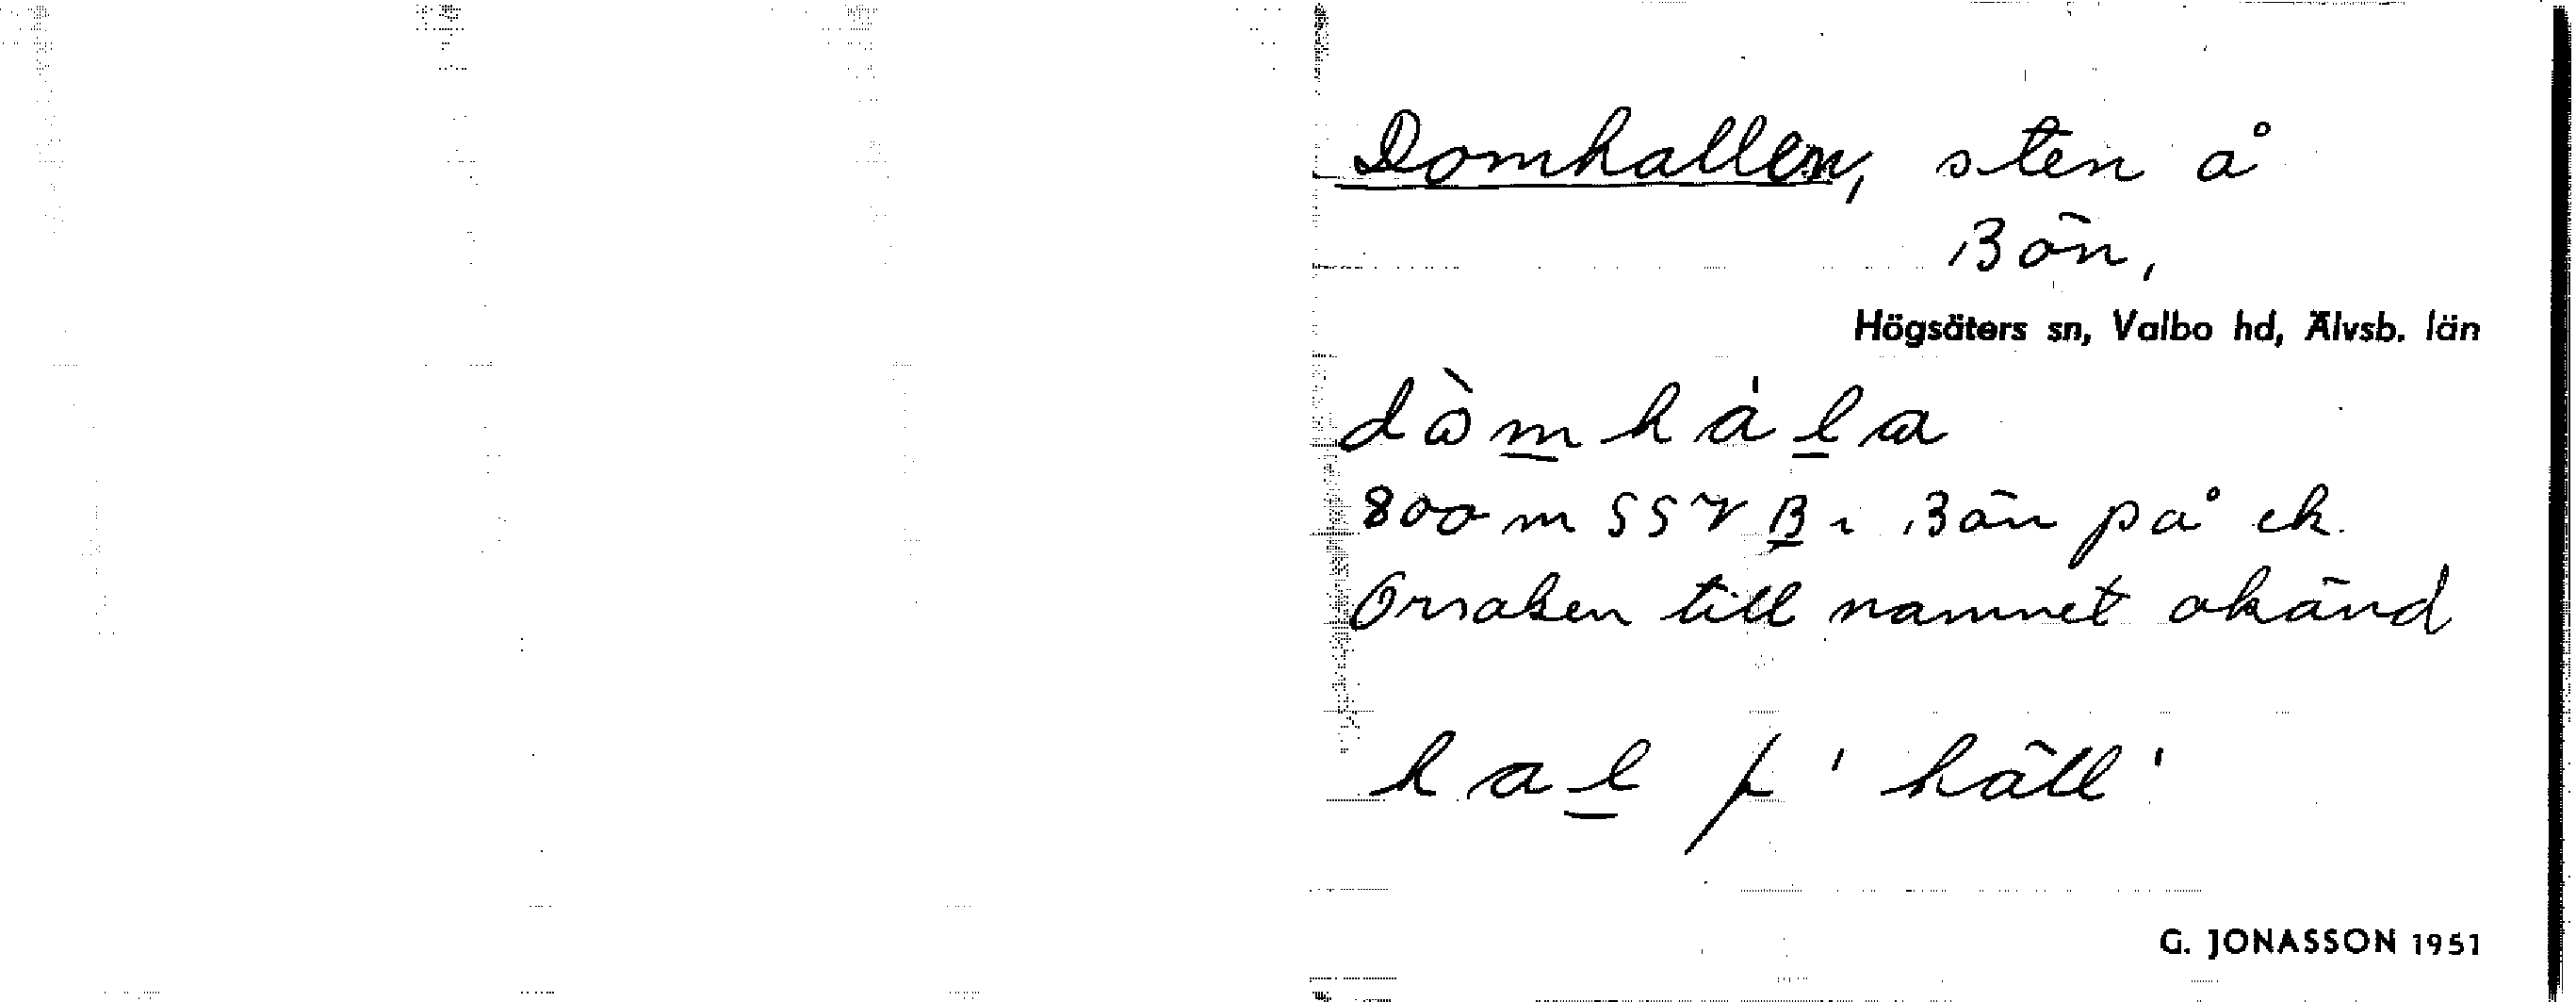 Domhallen, sten å
Bön,
Högsäters sn, Valbo hd, Älvsb. län
dò̀mhála
800 m SSV B i Bön på ek.
Orsaken till namnet okänd
hal f 'häll'
G. JONASSON 1951